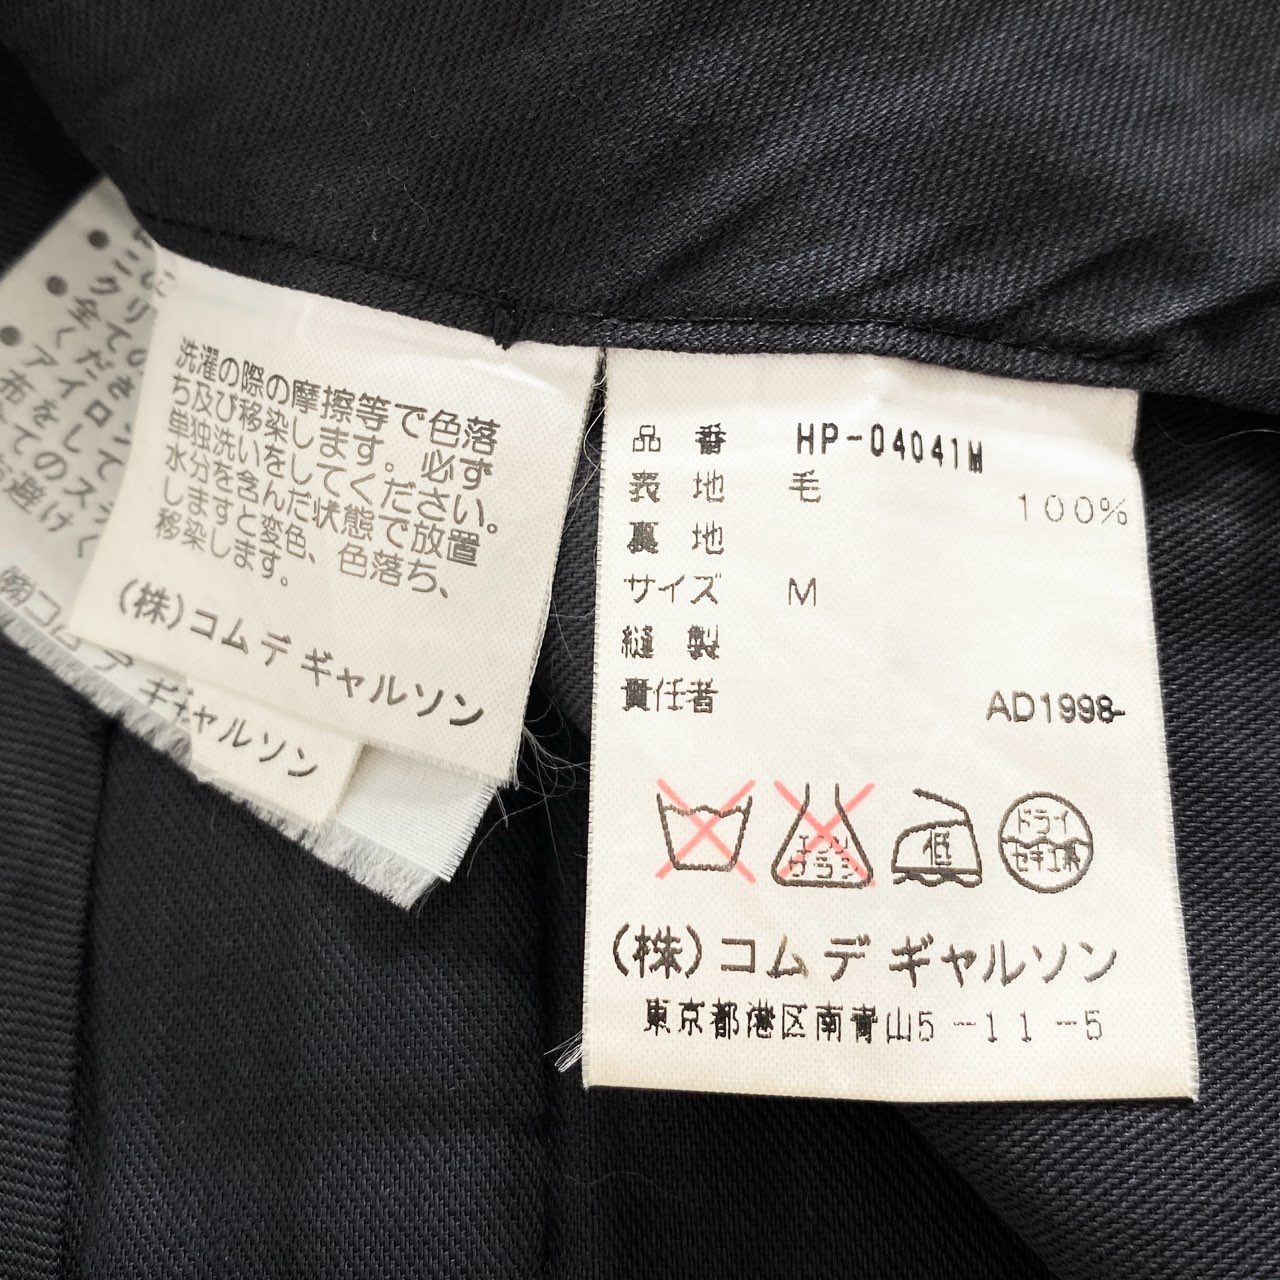 ● この
クリ
● 全ての
くださ
● アイロン
布をして
全てのスチ
お避けく
㈱コム デ ギャルソン
洗濯の際の摩擦等で色落
ち及び移染します。必ず
単独洗いをしてください。
水分を含んだ状態で放置
しますと変色、色落ち、
移染します。
(株)コム デ ギャルソン
ギャルソン
品 番 HP-04041M
表 地 毛 100%
裏 地
サイズ M
縫 製
責任者 AD1998-
エンソ
サラシ
低
ドライ
セキユ系
(株)コム デ ギャルソン
東京都港区南青山5-11-5